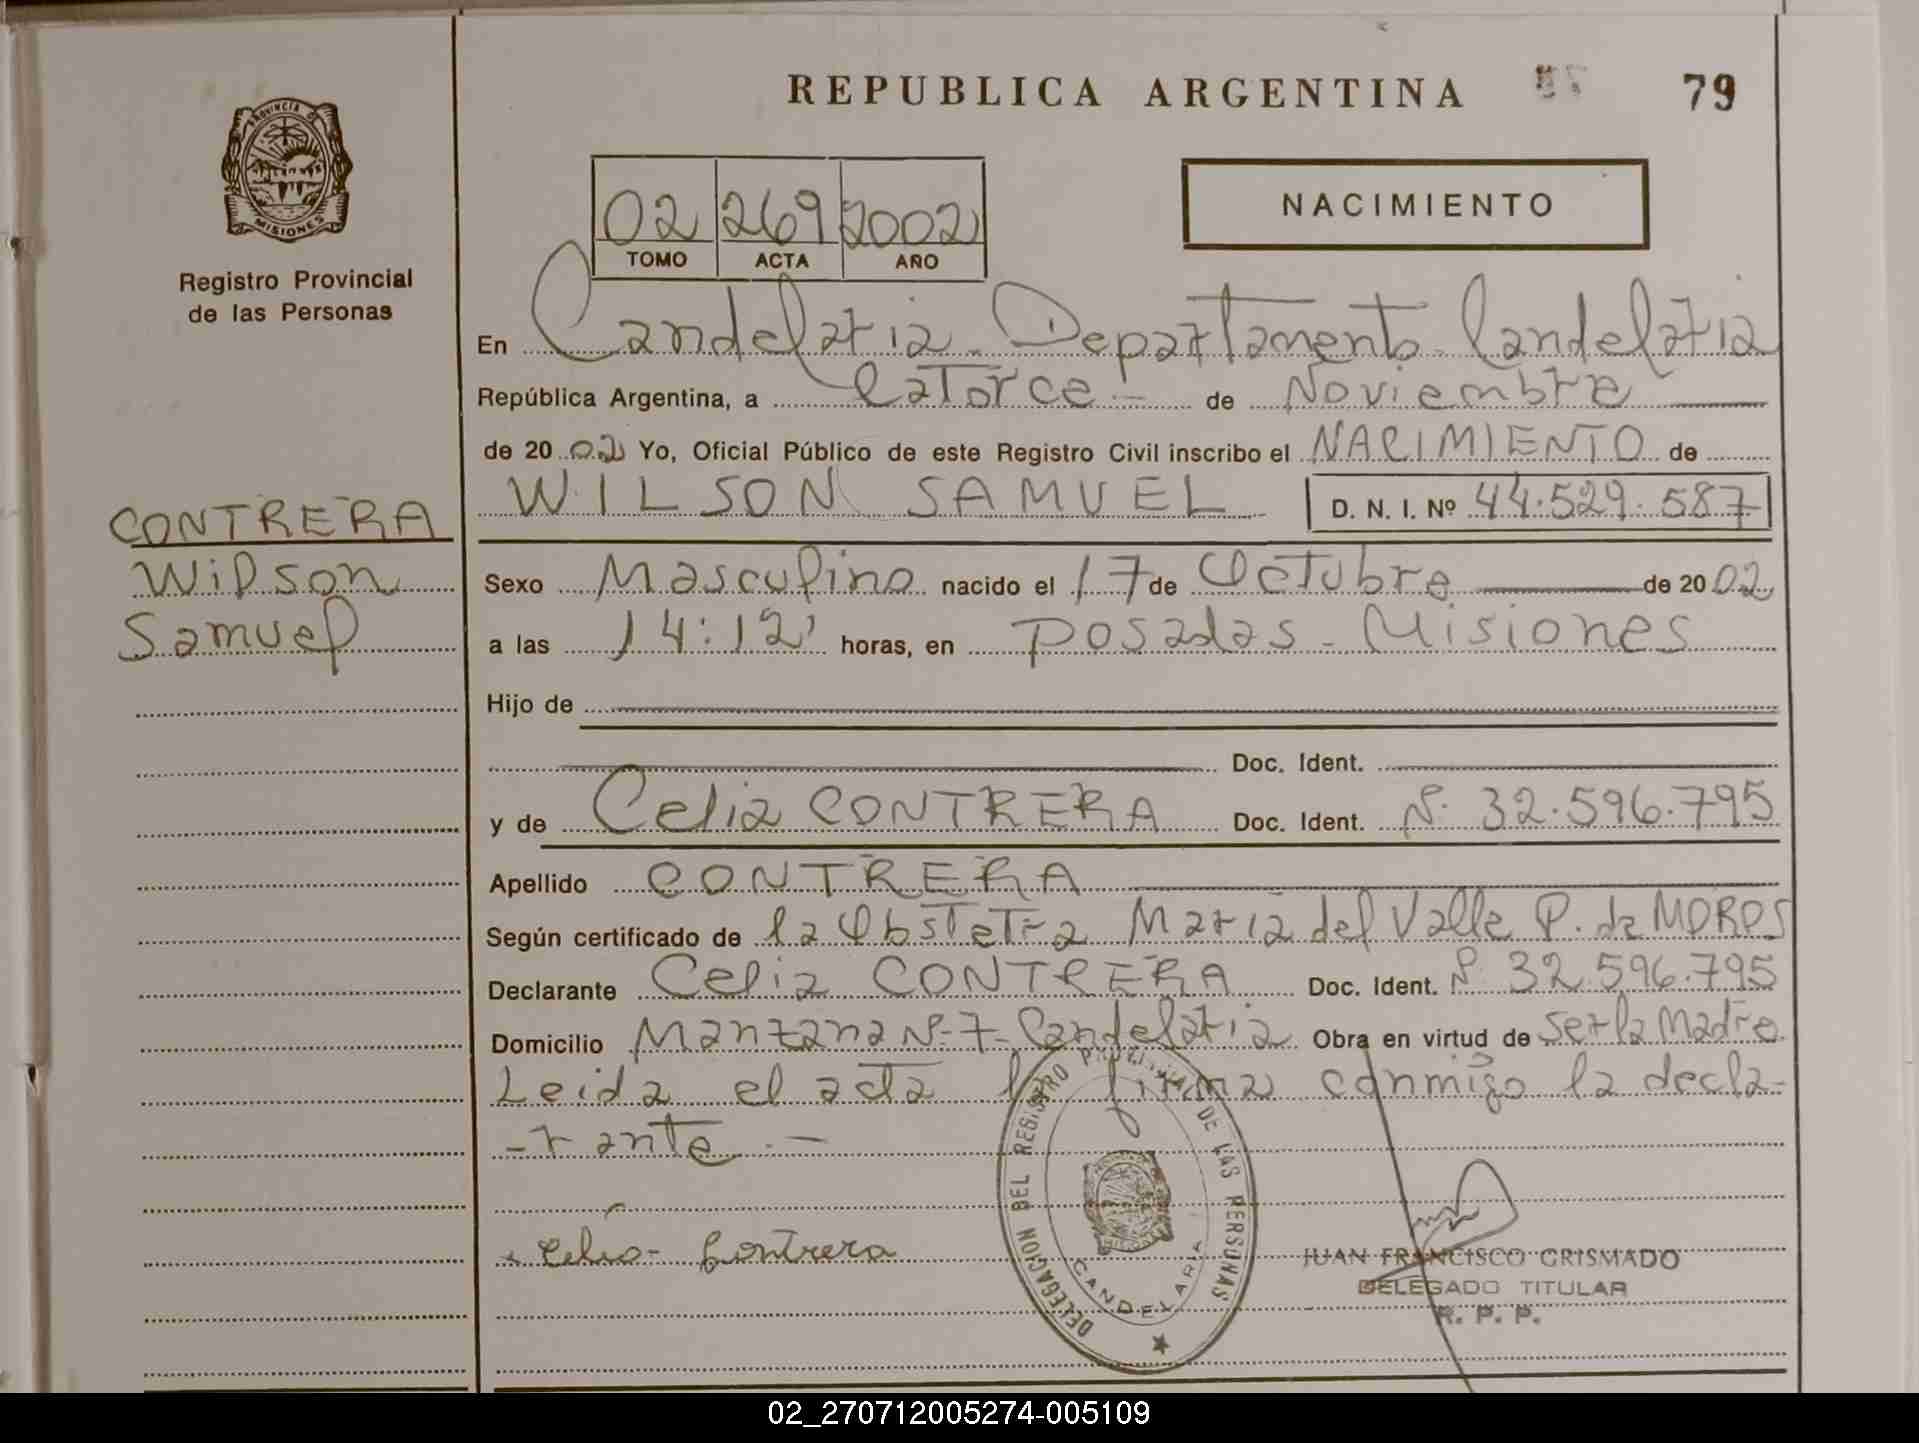 REPUBLICA ARGENTINA
79
PROVINCIA DE
MISIONES
Registro Provincial
de las Personas
02 269 2002
TOMO ACTA AÑO
NACIMIENTO
En Candelaria - Departamento - Candelaria
República Argentina, a Catorce - de Noviembre
de 20 02 Yo, Oficial Público de este Registro Civil inscribo el NACIMIENTO de
WILSON SAMUEL D. N. I. Nº 44.529.587
CONTRERA
Wilson
Samuel
Sexo Masculino nacido el 17 de Octubre de 20 02
a las 14:12' horas, en Posadas - Misiones
Hijo de
Doc. Ident.
y de Celia CONTRERA Doc. Ident. Nº 32.596.795
Apellido CONTRERA
Según certificado de la Obstetra María del Valle P. de MOROS
Declarante Celia CONTRERA Doc. Ident. Nº 32.596.795
Domicilio Manzana Nº 7 - Candelaria Obra en virtud de ser la Madre
Leida el acta la firma conmigo la decla-
-rante.-
Celia Contrera
DELEGACION DEL REGISTRO PROVINCIAL DE LAS PERSONAS
CANDELARIA
JUAN FRANCISCO GRISMADO
DELEGADO TITULAR
R. P. P.
02_270712005274-005109